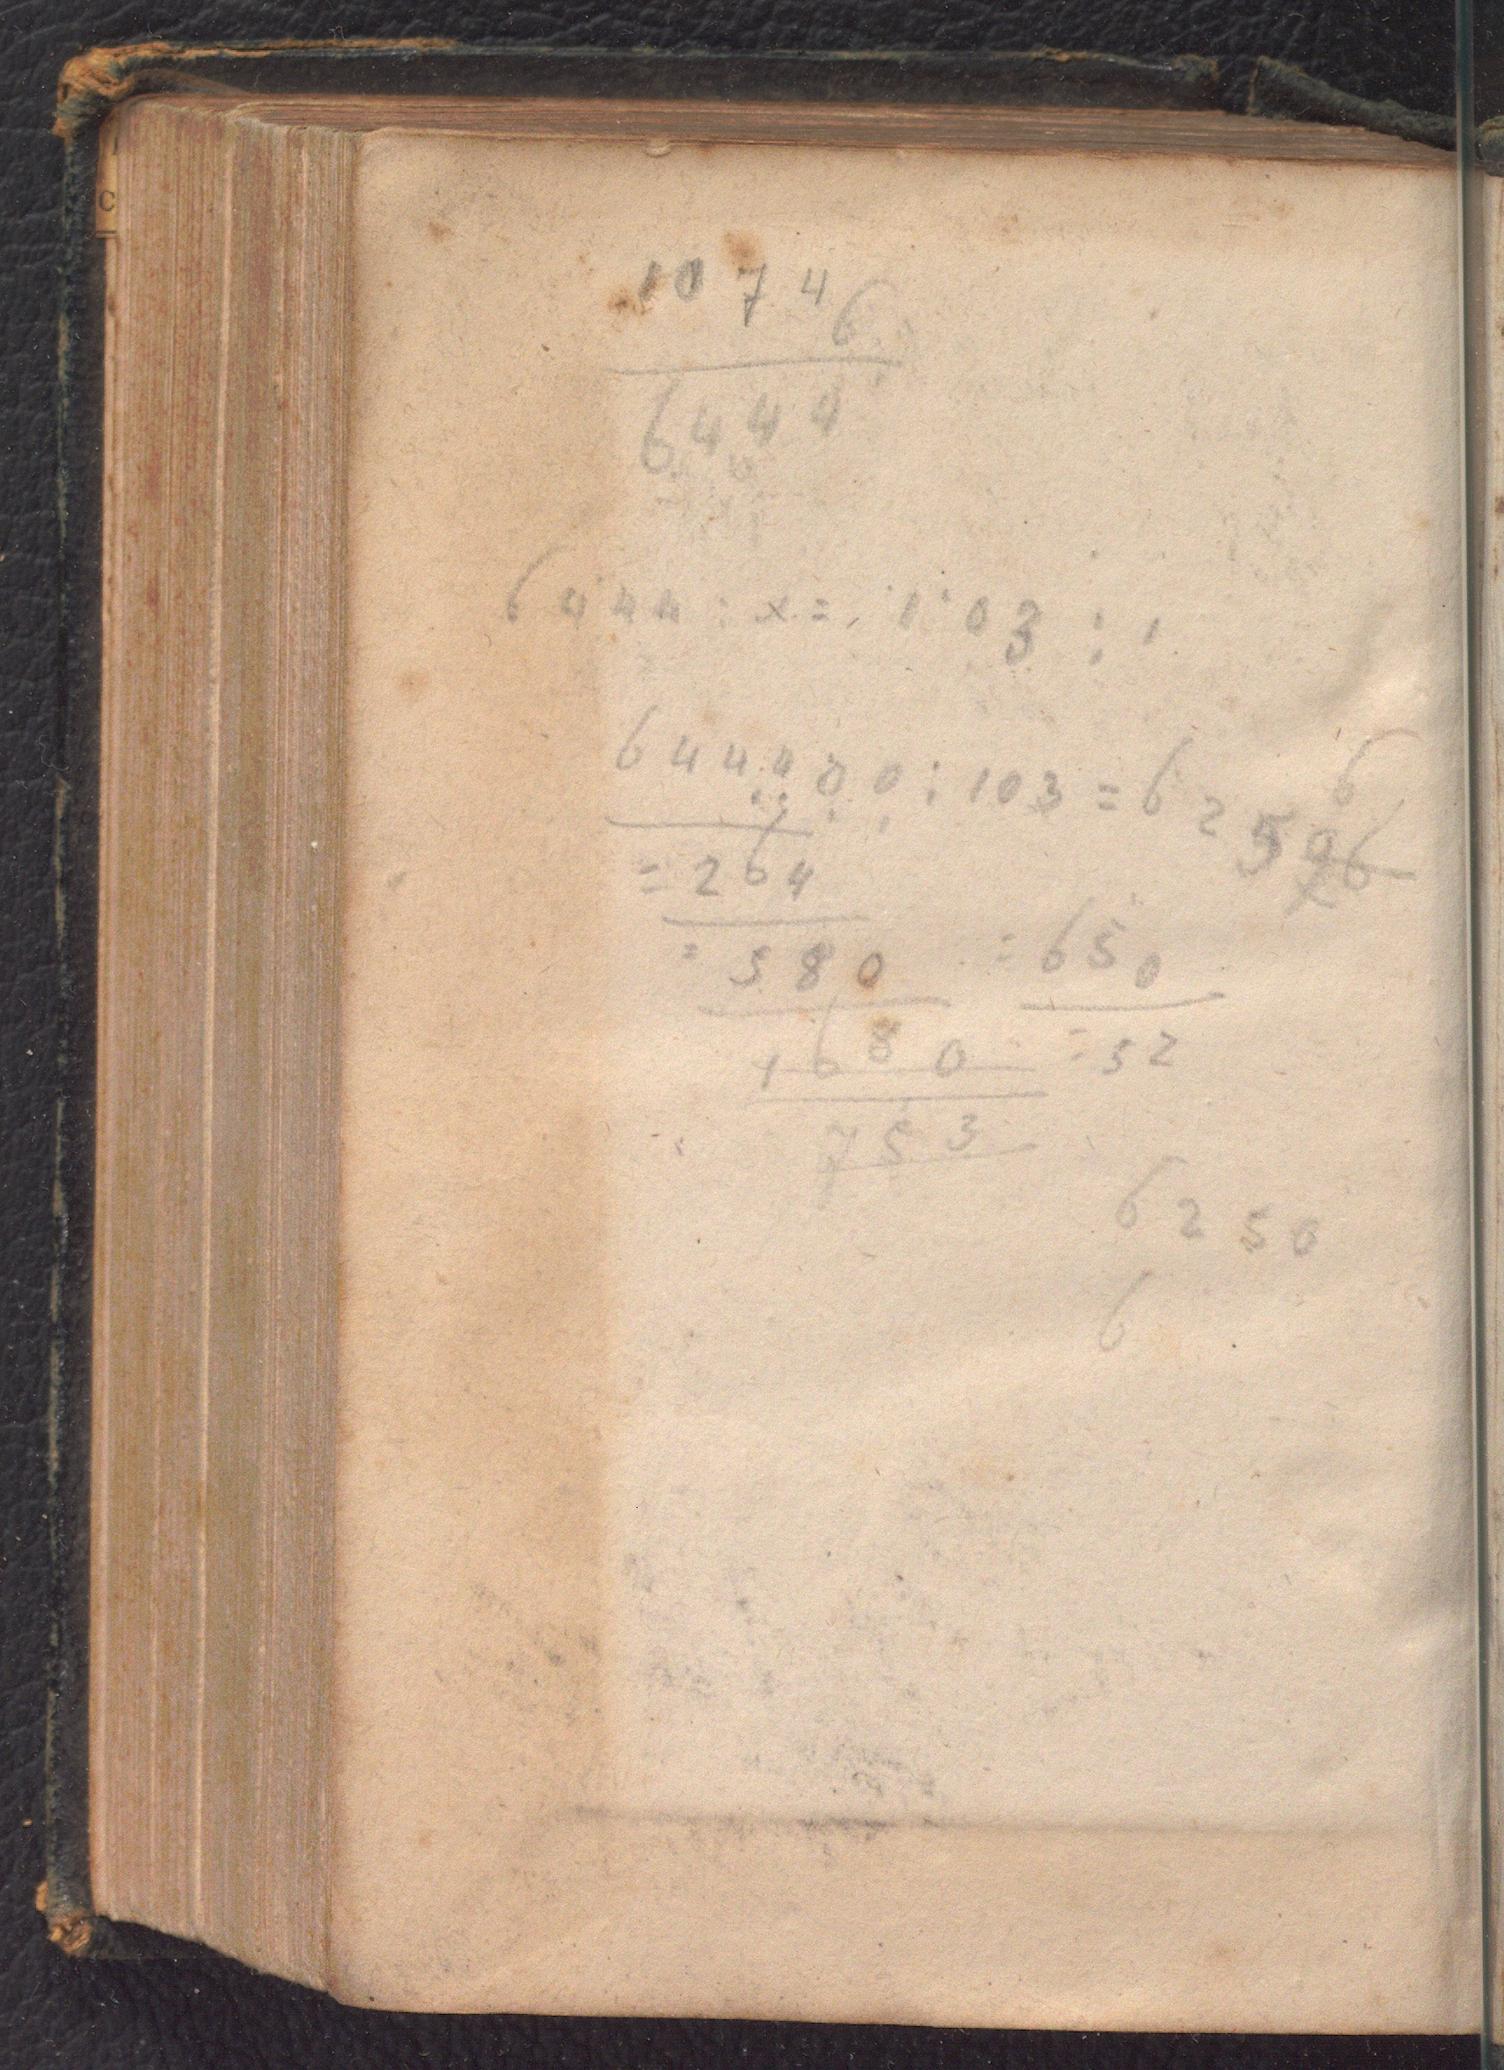 1074
6
6444
6444 : x = 1 03 : 1
644400 : 103 = 6256
= 264
= 580 = 650
1680 = 52
753
6250
6